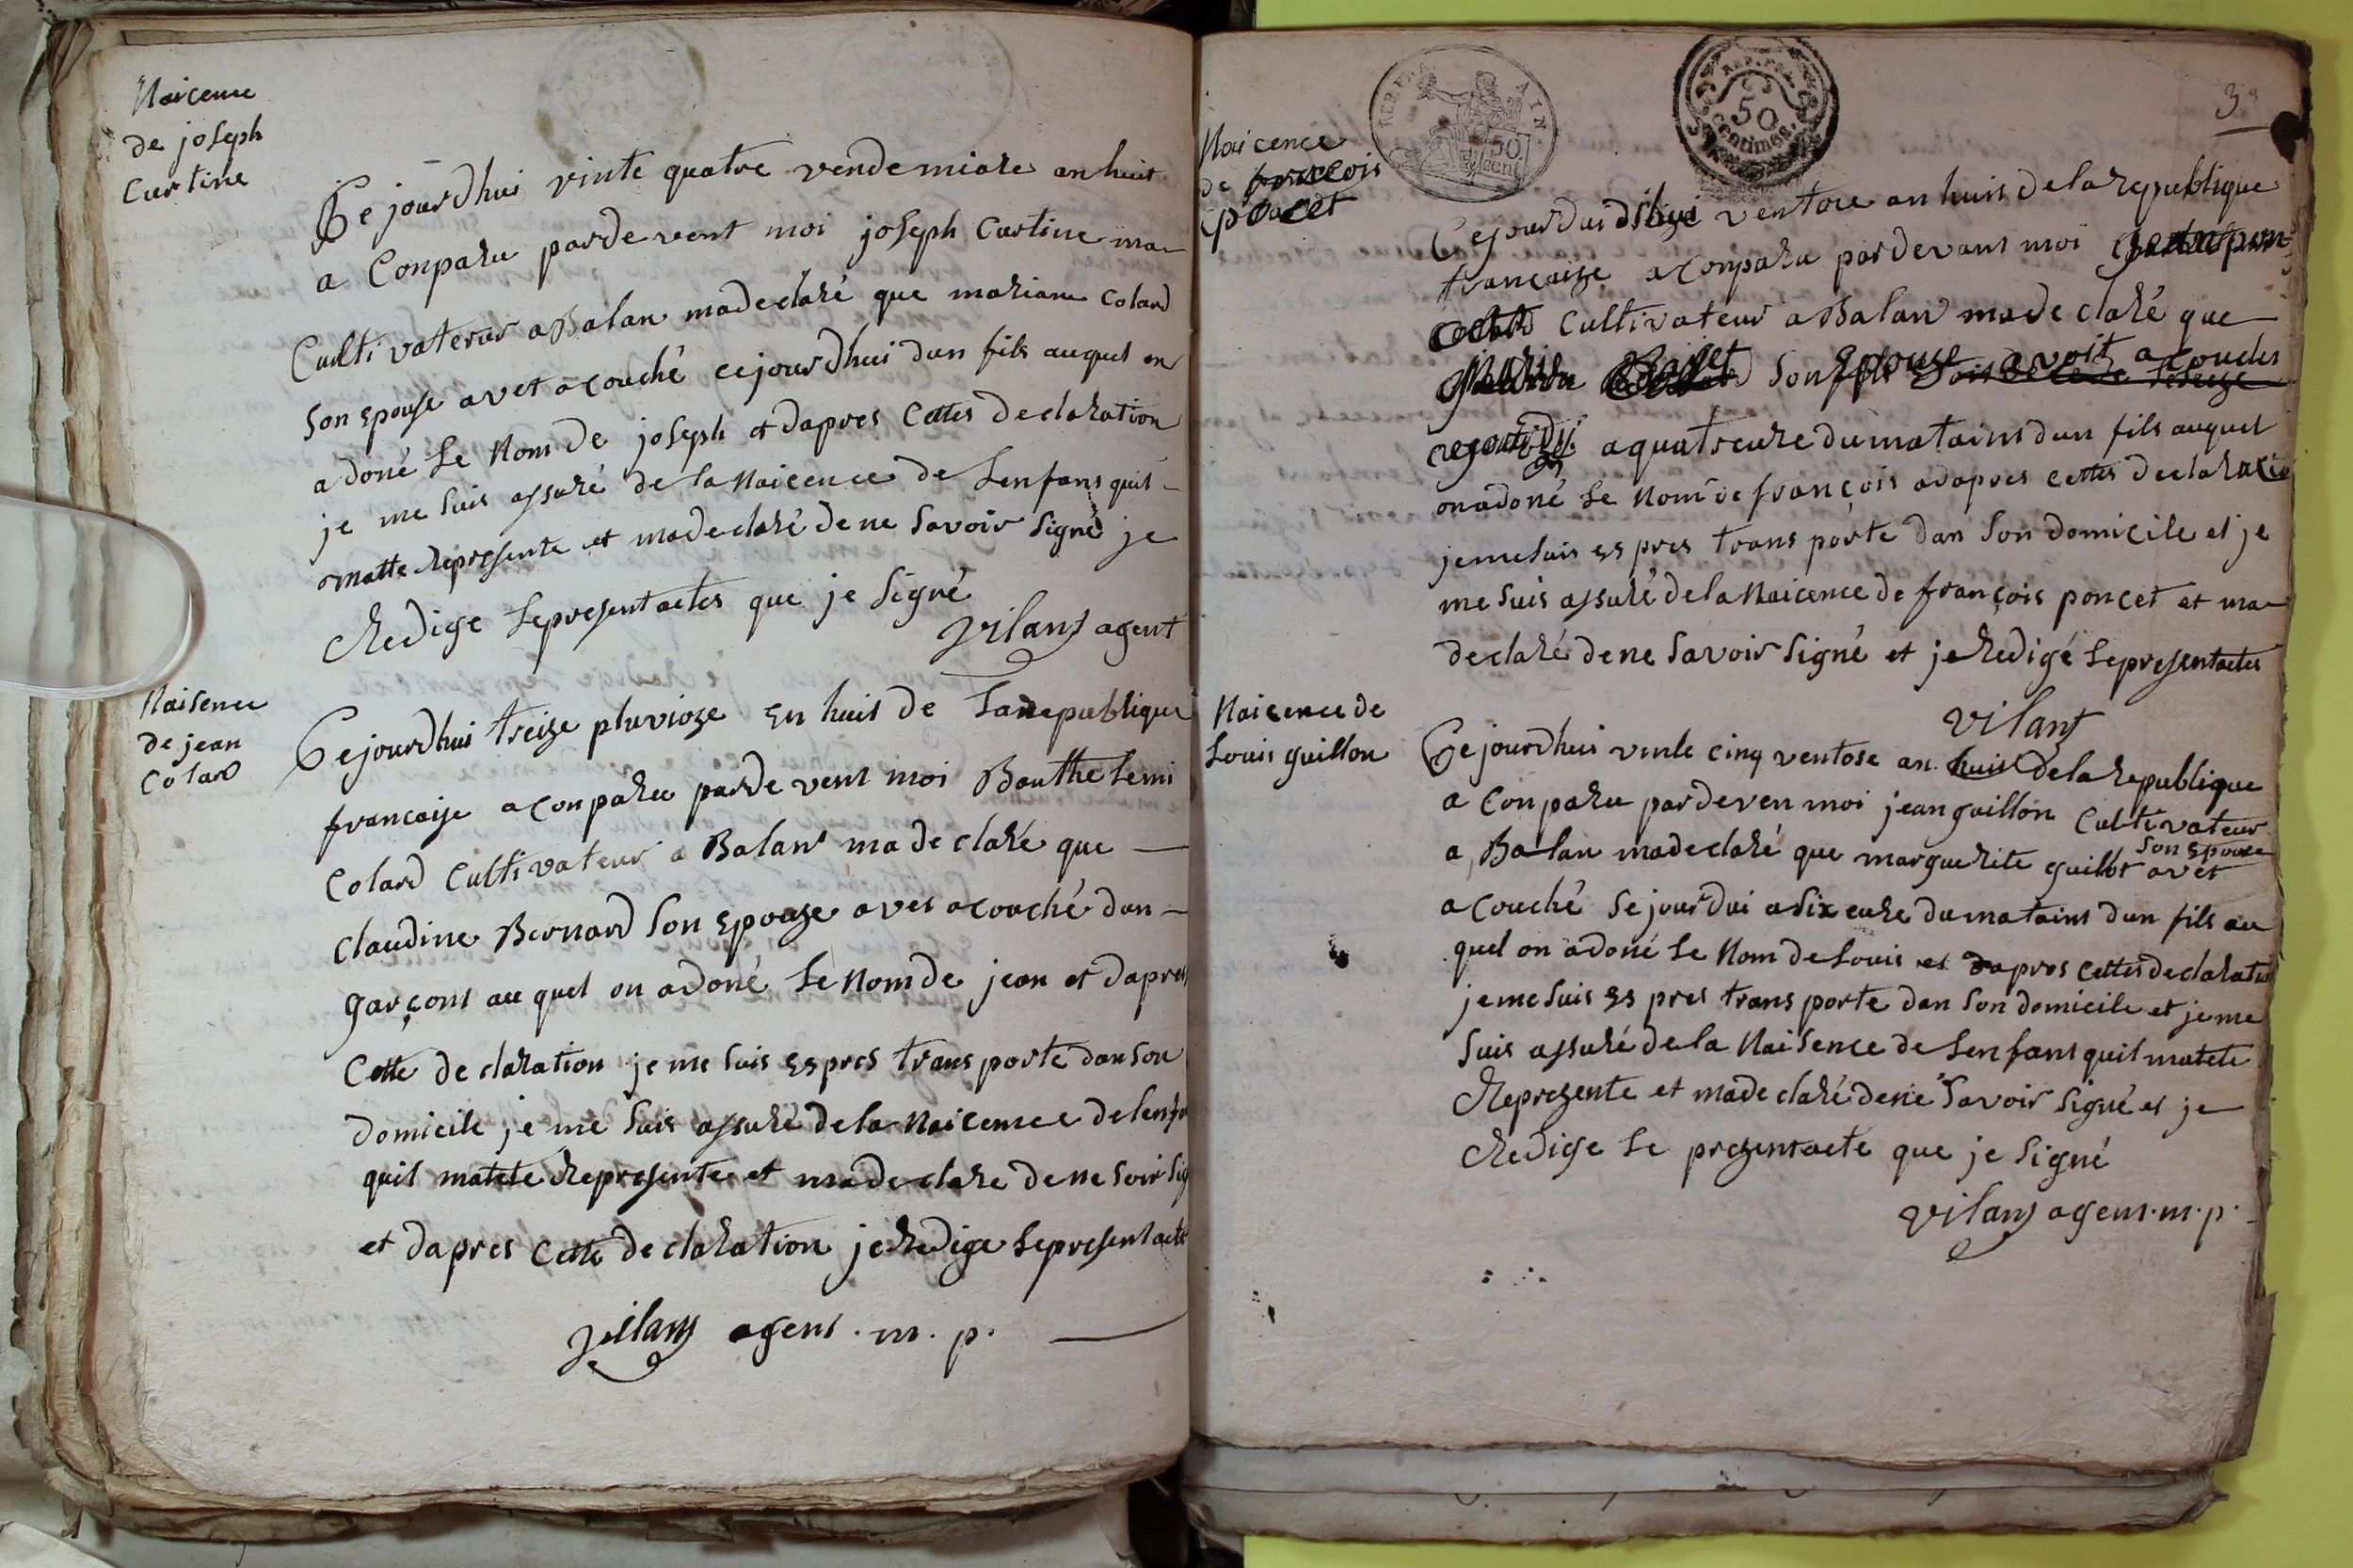 Naicence
de joseph
Curtine
Ce jourdhui vinte quatre vendemiare an huit
a Conparu pardevent moi joseph Curtine ma
Cultivaterur a Balan madeclaré que mariane Colard
son Epouse avet acouché cejourdhui dun fils auquel on
a doné le Nom de joseph et dapres Cettes declaration
je me suis assuré de la Naicence de lenfans quil
matte represente et madeclaré de ne savoir signé je
Redige lepresentactes que je signé
Vilans agent
Naisence
de jean
Colard
Cejourdhui treize pluvioze en huit de Larepublique
francaise aconparu pardevent moi Barthelemi
Colard Cultivateur a Balans madeclaré que
Claudine Bernard son Epouze avet acouché dun
garçons au quel on adoné le Nom de jean et dapres
Cette declaration je me suis espres transporte dan son
domicile je me suis assuré dela Naicence delenfa
quil matete Represente et madeclare de ne soir sig
et dapres Cette declaration je Redige lepresentacte
Vilans agens . m . p .
REP. FRA
50
centimes.
50
cent
3
Naicence
de francois
poncet
Cejourdui ventose an huit de la republique
francaize aconparu pardevans moi
Cultivateur a Balan madeclaré que
son Epouse avoit acouches
aquatreure dumatains dun fils auquel
onadoné le Nom de françois adapres cettes declaracio
jemesuis espres transporte dan son domicile et je
me suis assuré dela Naicence de françois poncet et ma
declaré dene savoir signé et je Redigé lepresentactes
Vilans
Naicence de
Louis guillon
Cejourdhui vinte cinq ventose an huit dela republique
a Conparu pardeven moi jean guillon Cultivateur
son epouze
a Balan madeclaré que marguerite guillot avet
acouché sejourdui asixeure dumatains dun fils au
quel on adoné le Nom de Louis et dapres cettesdeclaratio
jemesuis es pres transporte dan son domicile et jeme
suis assuré dela Naisence de lenfans quil matete
Reprezente et madeclaré dene savoir signé et je
Redige le prezentacte que je signé
Vilans agens . m . p .